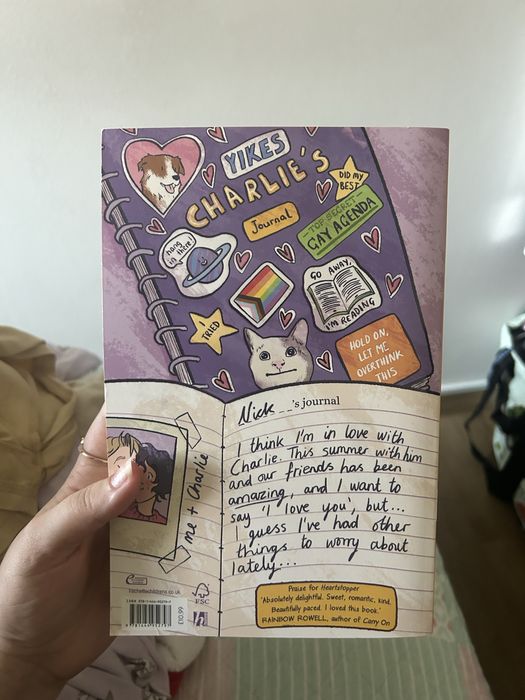 YIKES
CHARLIE'S
Journal
DID MY
BEST
TOP SECRET
GAY AGENDA
hang
in there!
GO AWAY,
I'M READING
I TRIED
HOLD ON,
LET ME
OVERTHINK
THIS
Nick _ _'s journal
I think I'm in love with
Charlie. This summer with him
and our friends has been
amazing, and I want to
say 'I love you', but...
I guess I've had other
things to worry about
lately...
me + Charlie
Praise for Heartstopper
'Absolutely delightful. Sweet, romantic, kind.
Beautifully paced. I loved this book.'
RAINBOW ROWELL, author of Carry On
FSC
£10.99